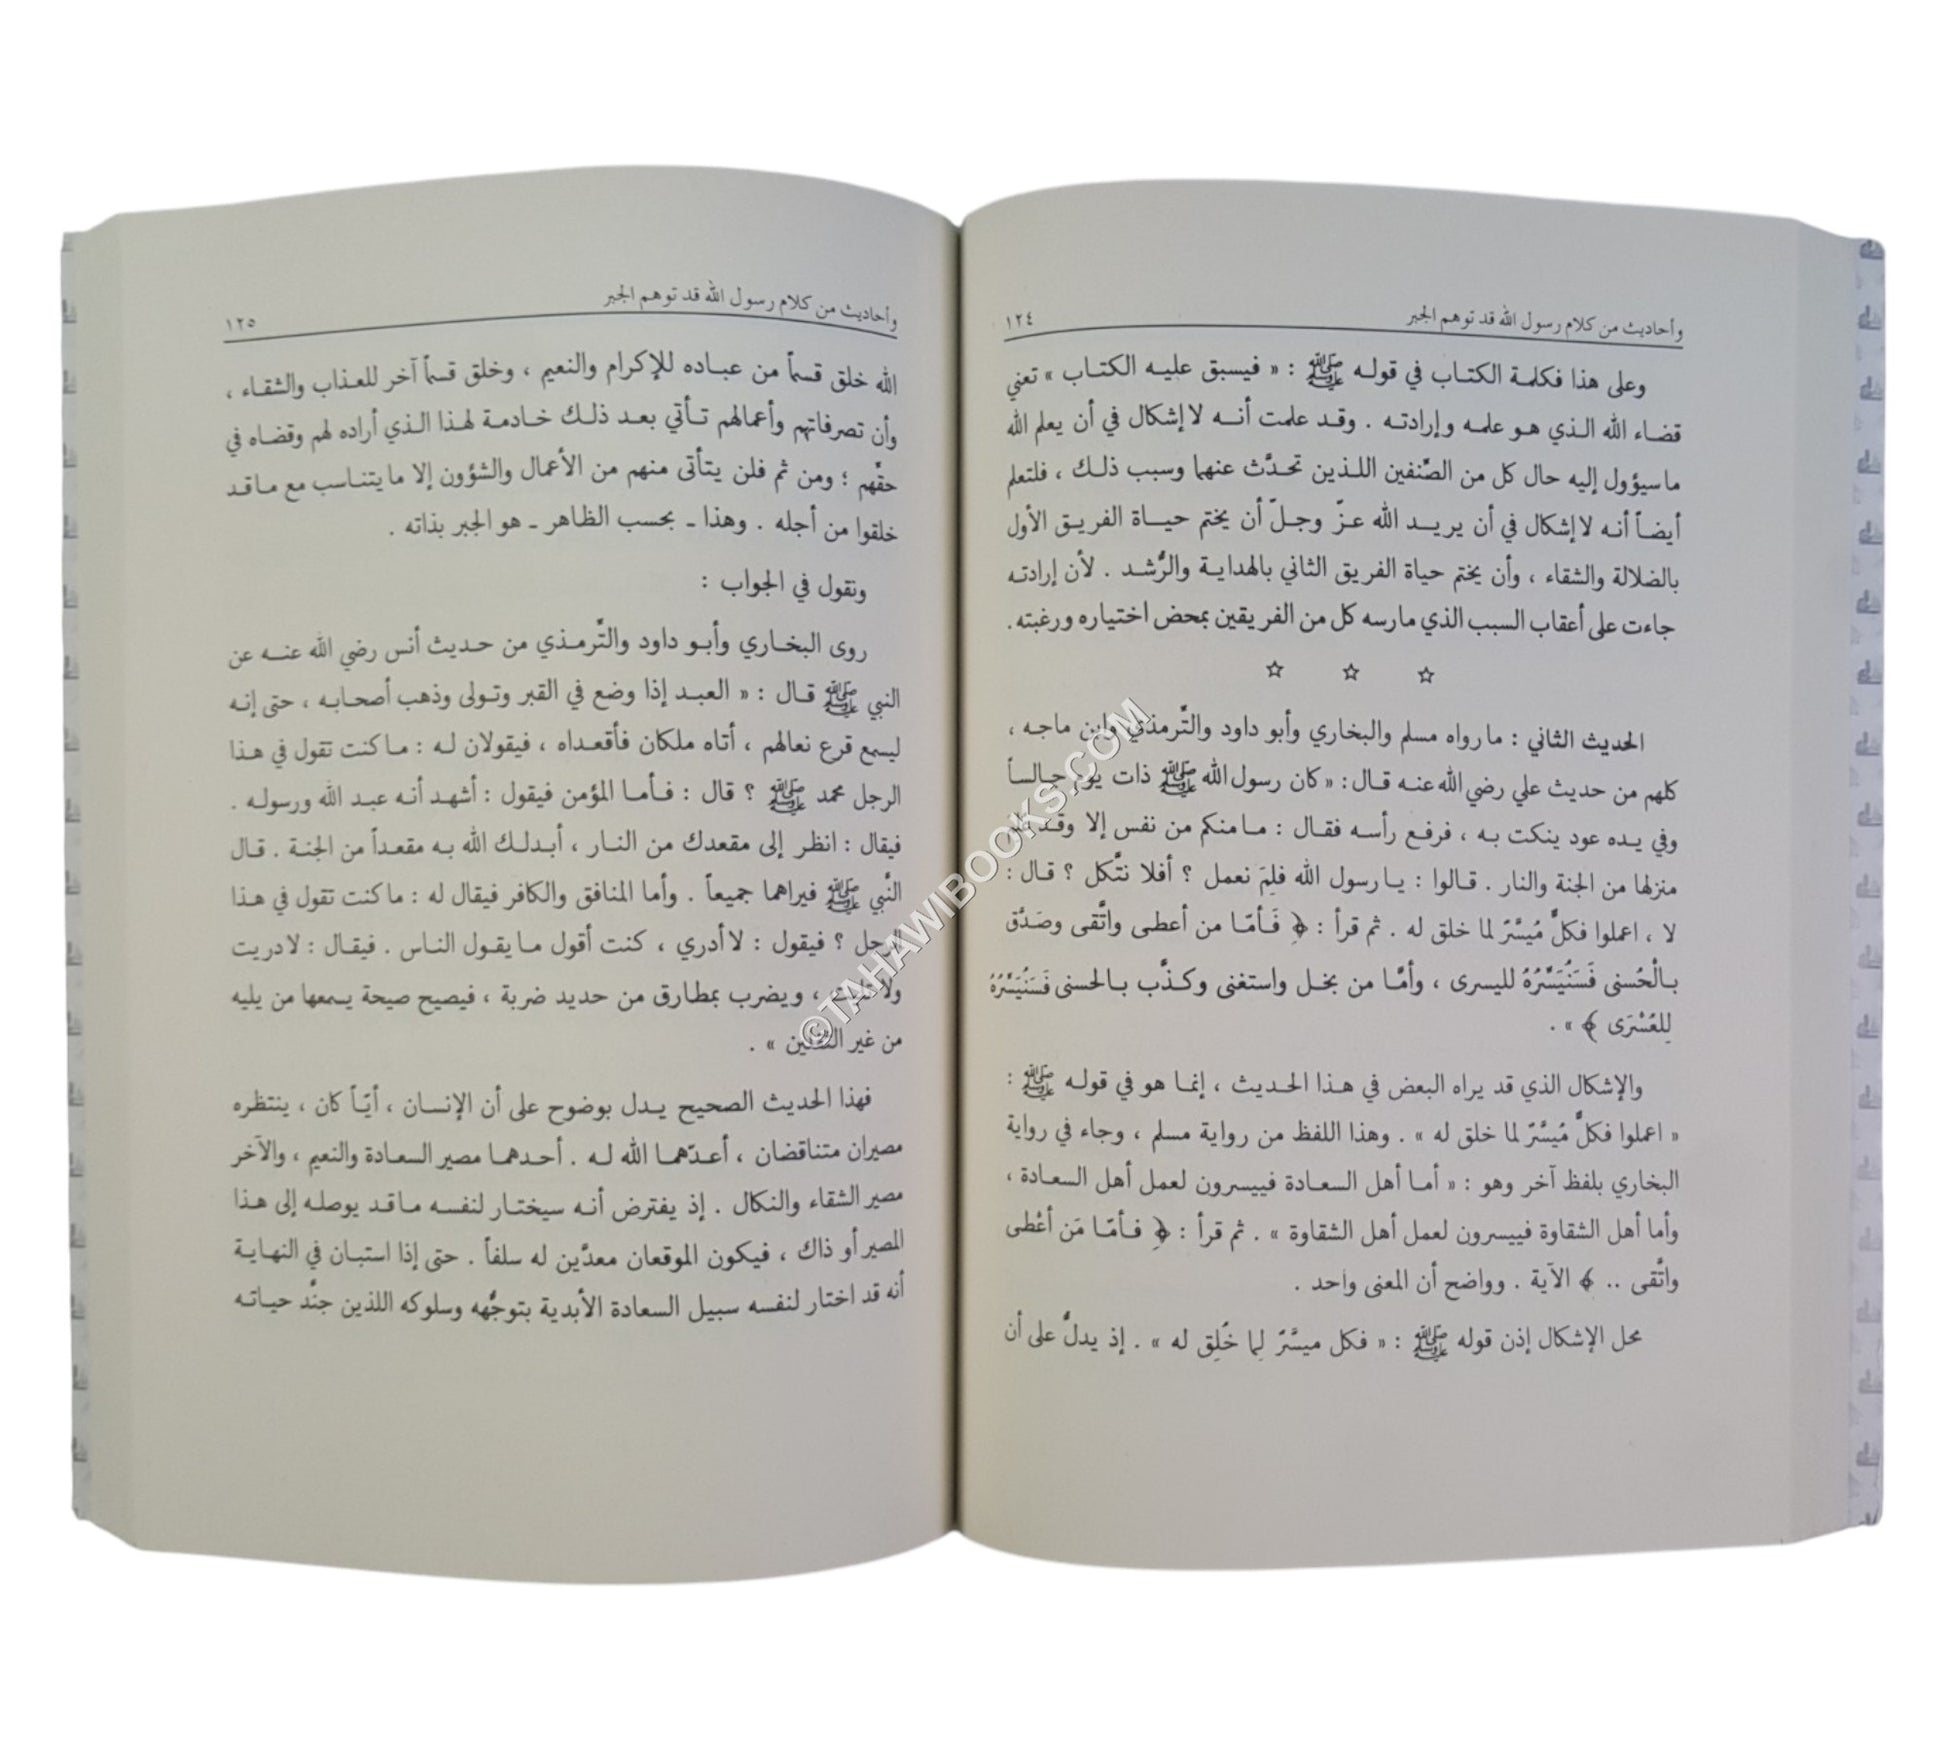 وأحاديث من كلام رسول الله قد توهم الجبر
١٢٤
وعلى هذا فكلمة الكتاب في قوله ﷺ : « فيسبق عليه الكتاب » تعني
قضاء الله الذي هو علمه وإرادته . وقد علمت أنه لا إشكال في أن يعلم الله
ما سيؤول إليه حال كل من الصِّنفين اللذين تحدَّث عنهما وسبب ذلك ، فلتعلم
أيضاً أنه لا إشكال في أن يريد الله عزّ وجلّ أن يختم حياة الفريق الأول
بالضلالة والشقاء ، وأن يختم حياة الفريق الثاني بالهداية والرُّشد . لأن إرادته
جاءت على أعقاب السبب الذي مارسه كل من الفريقين بمحض اختياره ورغبته .
☆ ☆ ☆
الحديث الثاني : ما رواه مسلم والبخاري وأبو داود والتِّرمذي وابن ماجه ،
كلهم من حديث علي رضي الله عنه قال : « كان رسول الله ﷺ ذات يوم جالساً
وفي يده عود ينكت به ، فرفع رأسه فقال : ما منكم من نفس إلا وقد
منزلها من الجنة والنار . قالوا : يا رسول الله فلِمَ نعمل ؟ أفلا نتَّكل ؟ قال :
لا ، اعملوا فكلٌّ مُيسَّرٌ لما خلق له . ثم قرأ : ﴿ فَأمّا من أعطى واتَّقى وصَدَّق
بالْحُسنى فَسَنُيَسِّرُهُ لليسرى ، وأمَّا من بخل واستغنى وكذَّب بالحسنى فَسَنُيَسِّرُهُ
لِلعُسْرَى ﴾ » .
والإشكال الذي قد يراه البعض في هذا الحديث ، إنما هو في قوله ﷺ :
« اعملوا فكلٌّ مُيسَّرٌ لما خلق له » . وهذا اللفظ من رواية مسلم ، وجاء في رواية
البخاري بلفظ آخر وهو : « أما أهل السعادة فييسرون لعمل أهل السعادة ،
وأما أهل الشقاوة فييسرون لعمل أهل الشقاوة » . ثم قرأ : ﴿ فأمّا مَن أعْطى
واتَّقى .. ﴾ الآية . وواضح أن المعنى واحد .
محل الإشكال إذن قوله ﷺ : « فكل ميسَّرٌ لِما خُلِق له » . إذ يدلُّ على أن
وأحاديث من كلام رسول الله قد توهم الجبر
١٢٥
الله خلق قسماً من عباده للإكرام والنعيم ، وخلق قسماً آخر للعذاب والشقاء ،
وأن تصرفاتهم وأعمالهم تأتي بعد ذلك خادمة لهذا الذي أراده لهم وقضاه في
حقِّهم ؛ ومن ثم فلن يتأتى منهم من الأعمال والشؤون إلا ما يتناسب مع ما قد
خلقوا من أجله . وهذا ـ بحسب الظاهر ـ هو الجبر بذاته .
ونقول في الجواب :
روى البخاري وأبو داود والتِّرمذي من حديث أنس رضي الله عنه عن
النبي ﷺ قال : « العبد إذا وضع في القبر وتولى وذهب أصحابه ، حتى إنه
ليسمع قرع نعالهم ، أتاه ملكان فأقعداه ، فيقولان له : ما كنت تقول في هذا
الرجل محمد ﷺ ؟ قال : فأما المؤمن فيقول : أشهد أنه عبد الله ورسوله .
فيقال : انظر إلى مقعدك من النار ، أبدلك الله به مقعداً من الجنة . قال
النَّبي ﷺ فيراهما جميعاً . وأما المنافق والكافر فيقال له : ما كنت تقول في هذا
الرجل ؟ فيقول : لا أدري ، كنت أقول ما يقول الناس . فيقال : لا دريت
ولا ، ويضرب بمطارق من حديد ضربة ، فيصيح صيحة يسمعها من يليه
من غير الثقلين » .
فهذا الحديث الصحيح يدل بوضوح على أن الإنسان ، أيّاً كان ، ينتظره
مصيران متناقضان ، أعدّهما الله له . أحدهما مصير السعادة والنعيم ، والآخر
مصير الشقاء والنكال . إذ يفترض أنه سيختار لنفسه ما قد يوصله إلى هذا
المصير أو ذاك ، فيكون الموقعان معدَّين له سلفاً . حتى إذا استبان في النهاية
أنه قد اختار لنفسه سبيل السعادة الأبدية بتوجُّهه وسلوكه اللذين جنَّد حياته
©TAHAWIBOOKS.COM